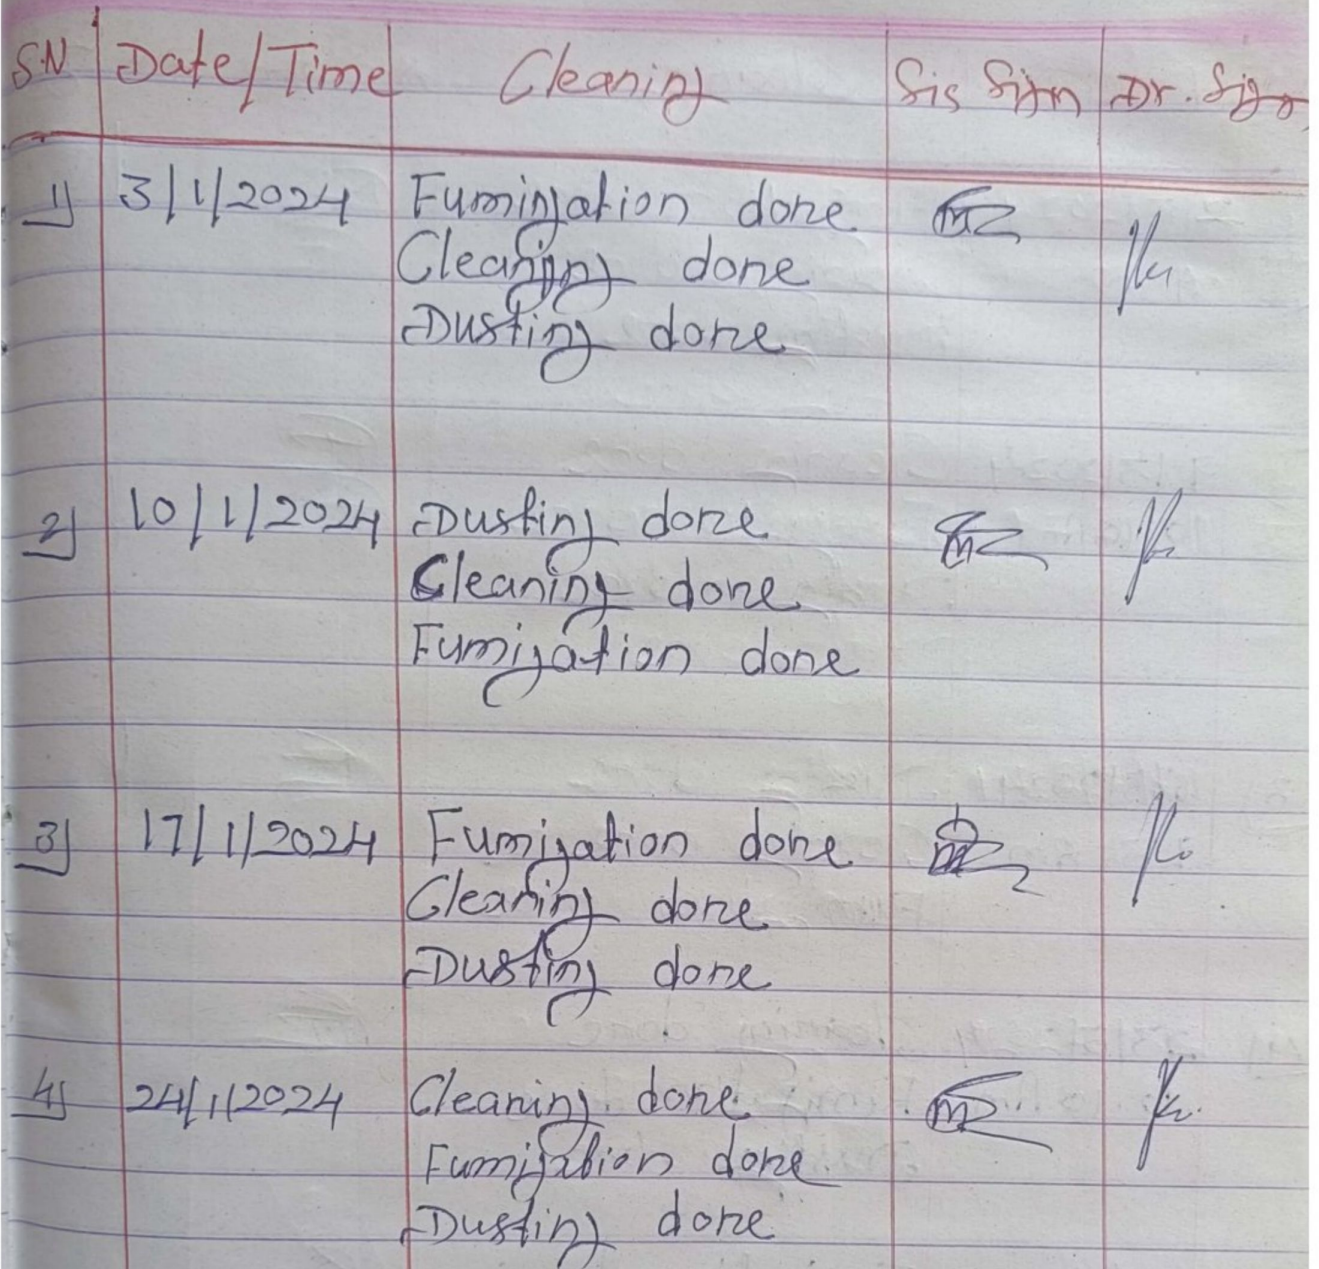 SN Date/Time Cleaning Sis Sign Dr. Sign
1) 3/1/2024 Fumigation done
Cleaning done
Dusting done
2) 10/1/2024 Dusting done
Cleaning done
Fumigation done
3) 17/1/2024 Fumigation done
Cleaning done
Dusting done
4) 24/1/2024 Cleaning done
Fumigation done
Dusting done